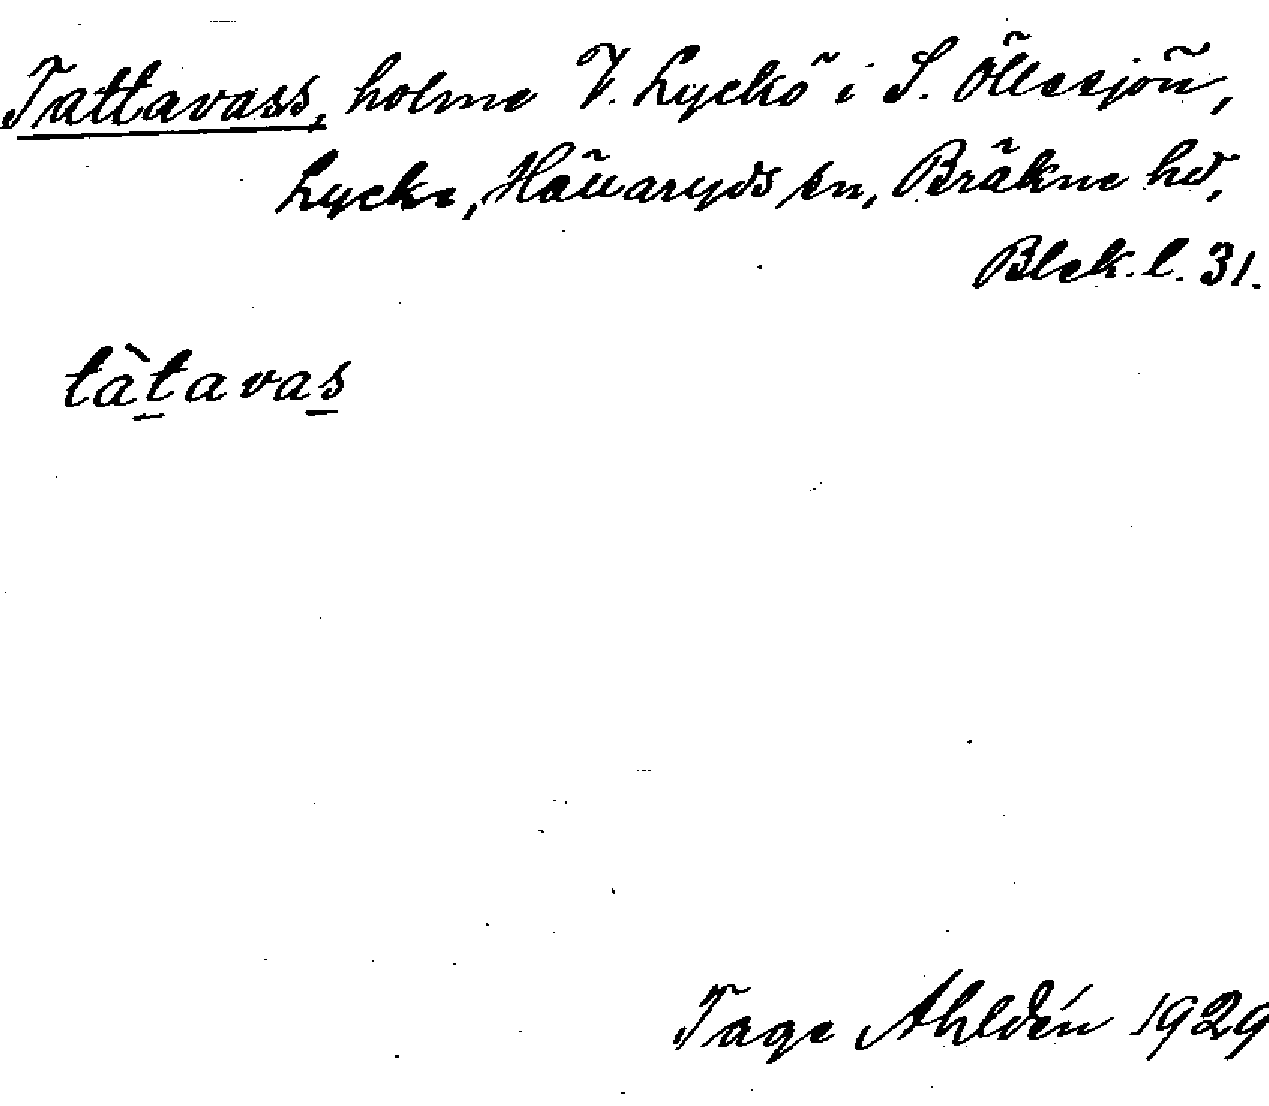 Tattavass, holme V. Lyckö i S. Öllesjön,
Lycke, Hällaryds sn, Bräkne hd,
Blek. l. 31.
tàt̲avas̲
Tage Ahldén 1929